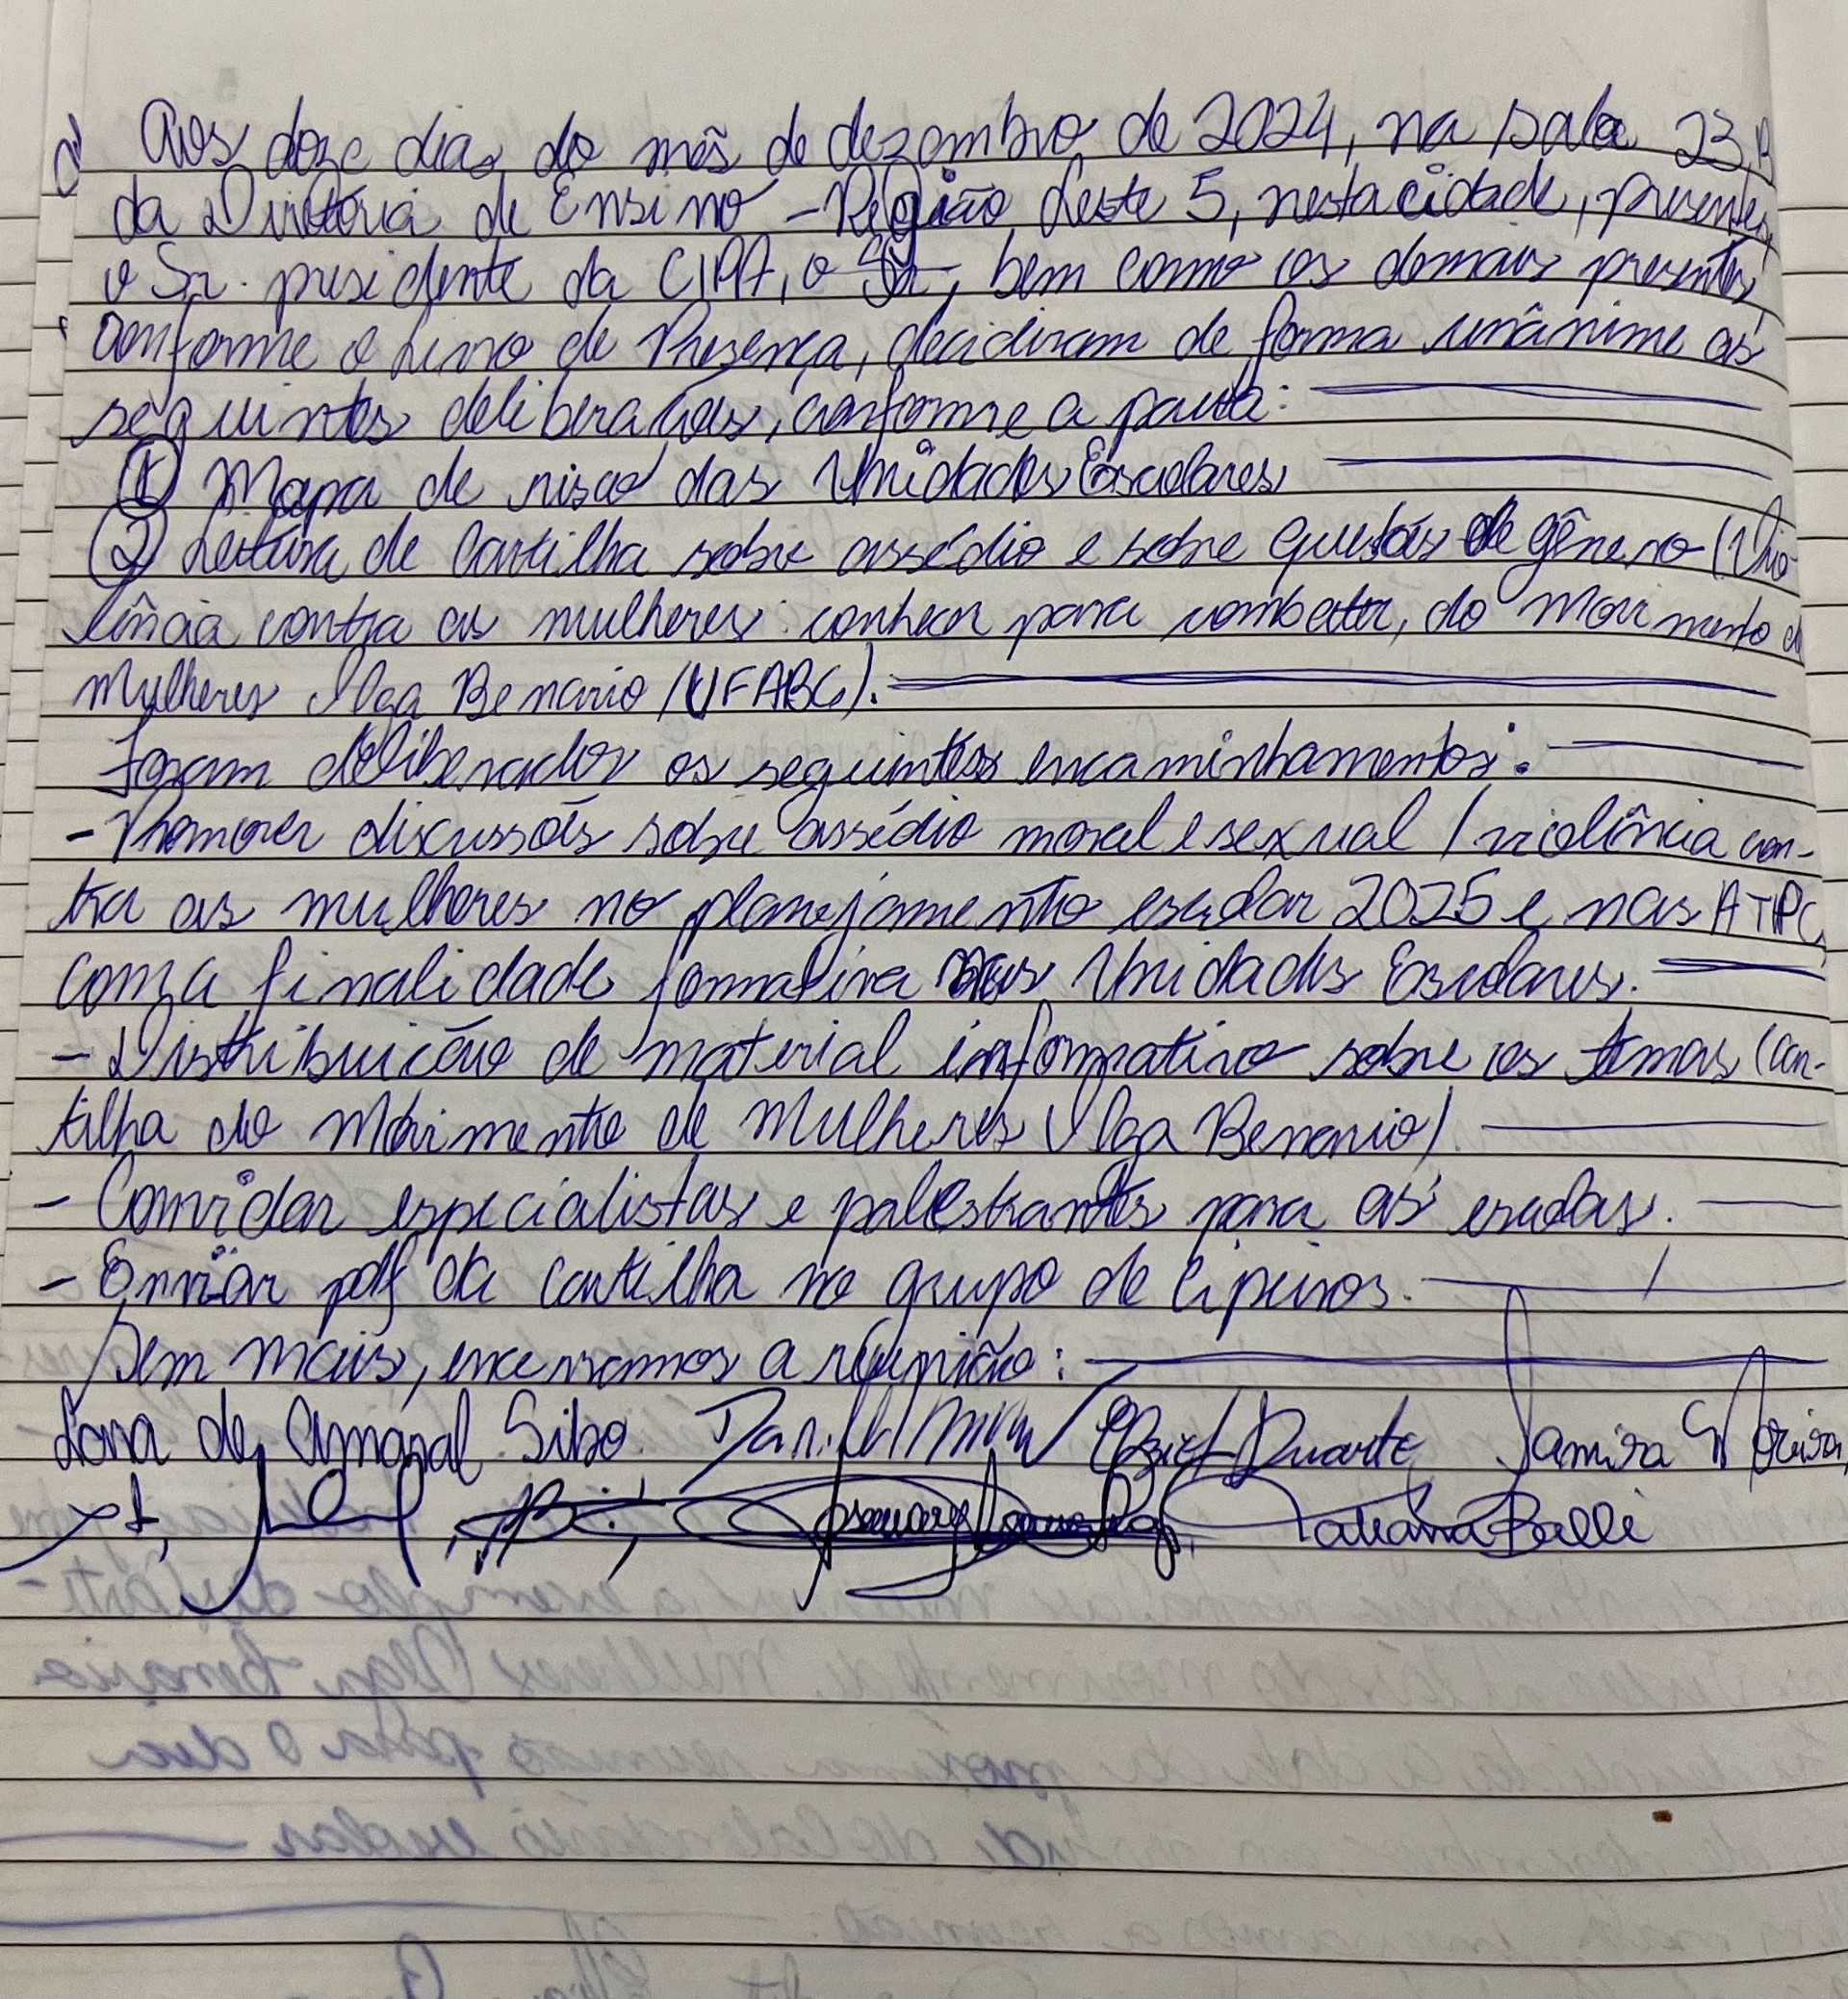 Aos doze dias do mês de dezembro de 2024, na sala 23,
da Diretoria de Ensino - Região Leste 5, nesta cidade, presentes
o Sr. presidente da CIPA, o Sr., bem como os demais presentes,
conforme o Livro de Presença, decidiram de forma unânime as
seguintes deliberações, conforme a pauta:
① Mapa de risco das Unidades Escolares
② Leitura de Cartilha sobre assédio e sobre questões de gênero (Vio
lência contra as mulheres: conhecer para combater, do Movimento de
Mulheres Olga Benario (UFABC).
Foram deliberados os seguintes encaminhamentos:
- Promover discussões sobre assédio moral e sexual / violência con-
tra as mulheres no planejamento escolar 2025 e nas ATPC,
com a finalidade formativa nas Unidades Escolares.
- Distribuição de material informativo sobre os temas (car-
tilha do Movimento de Mulheres Olga Benario)
- Convidar especialistas e palestrantes para as escolas.
- Enviar pdf da cartilha no grupo de cipeiros.
Sem mais, encerramos a reunião:
de Amaral Duarte Samira
Tatiana